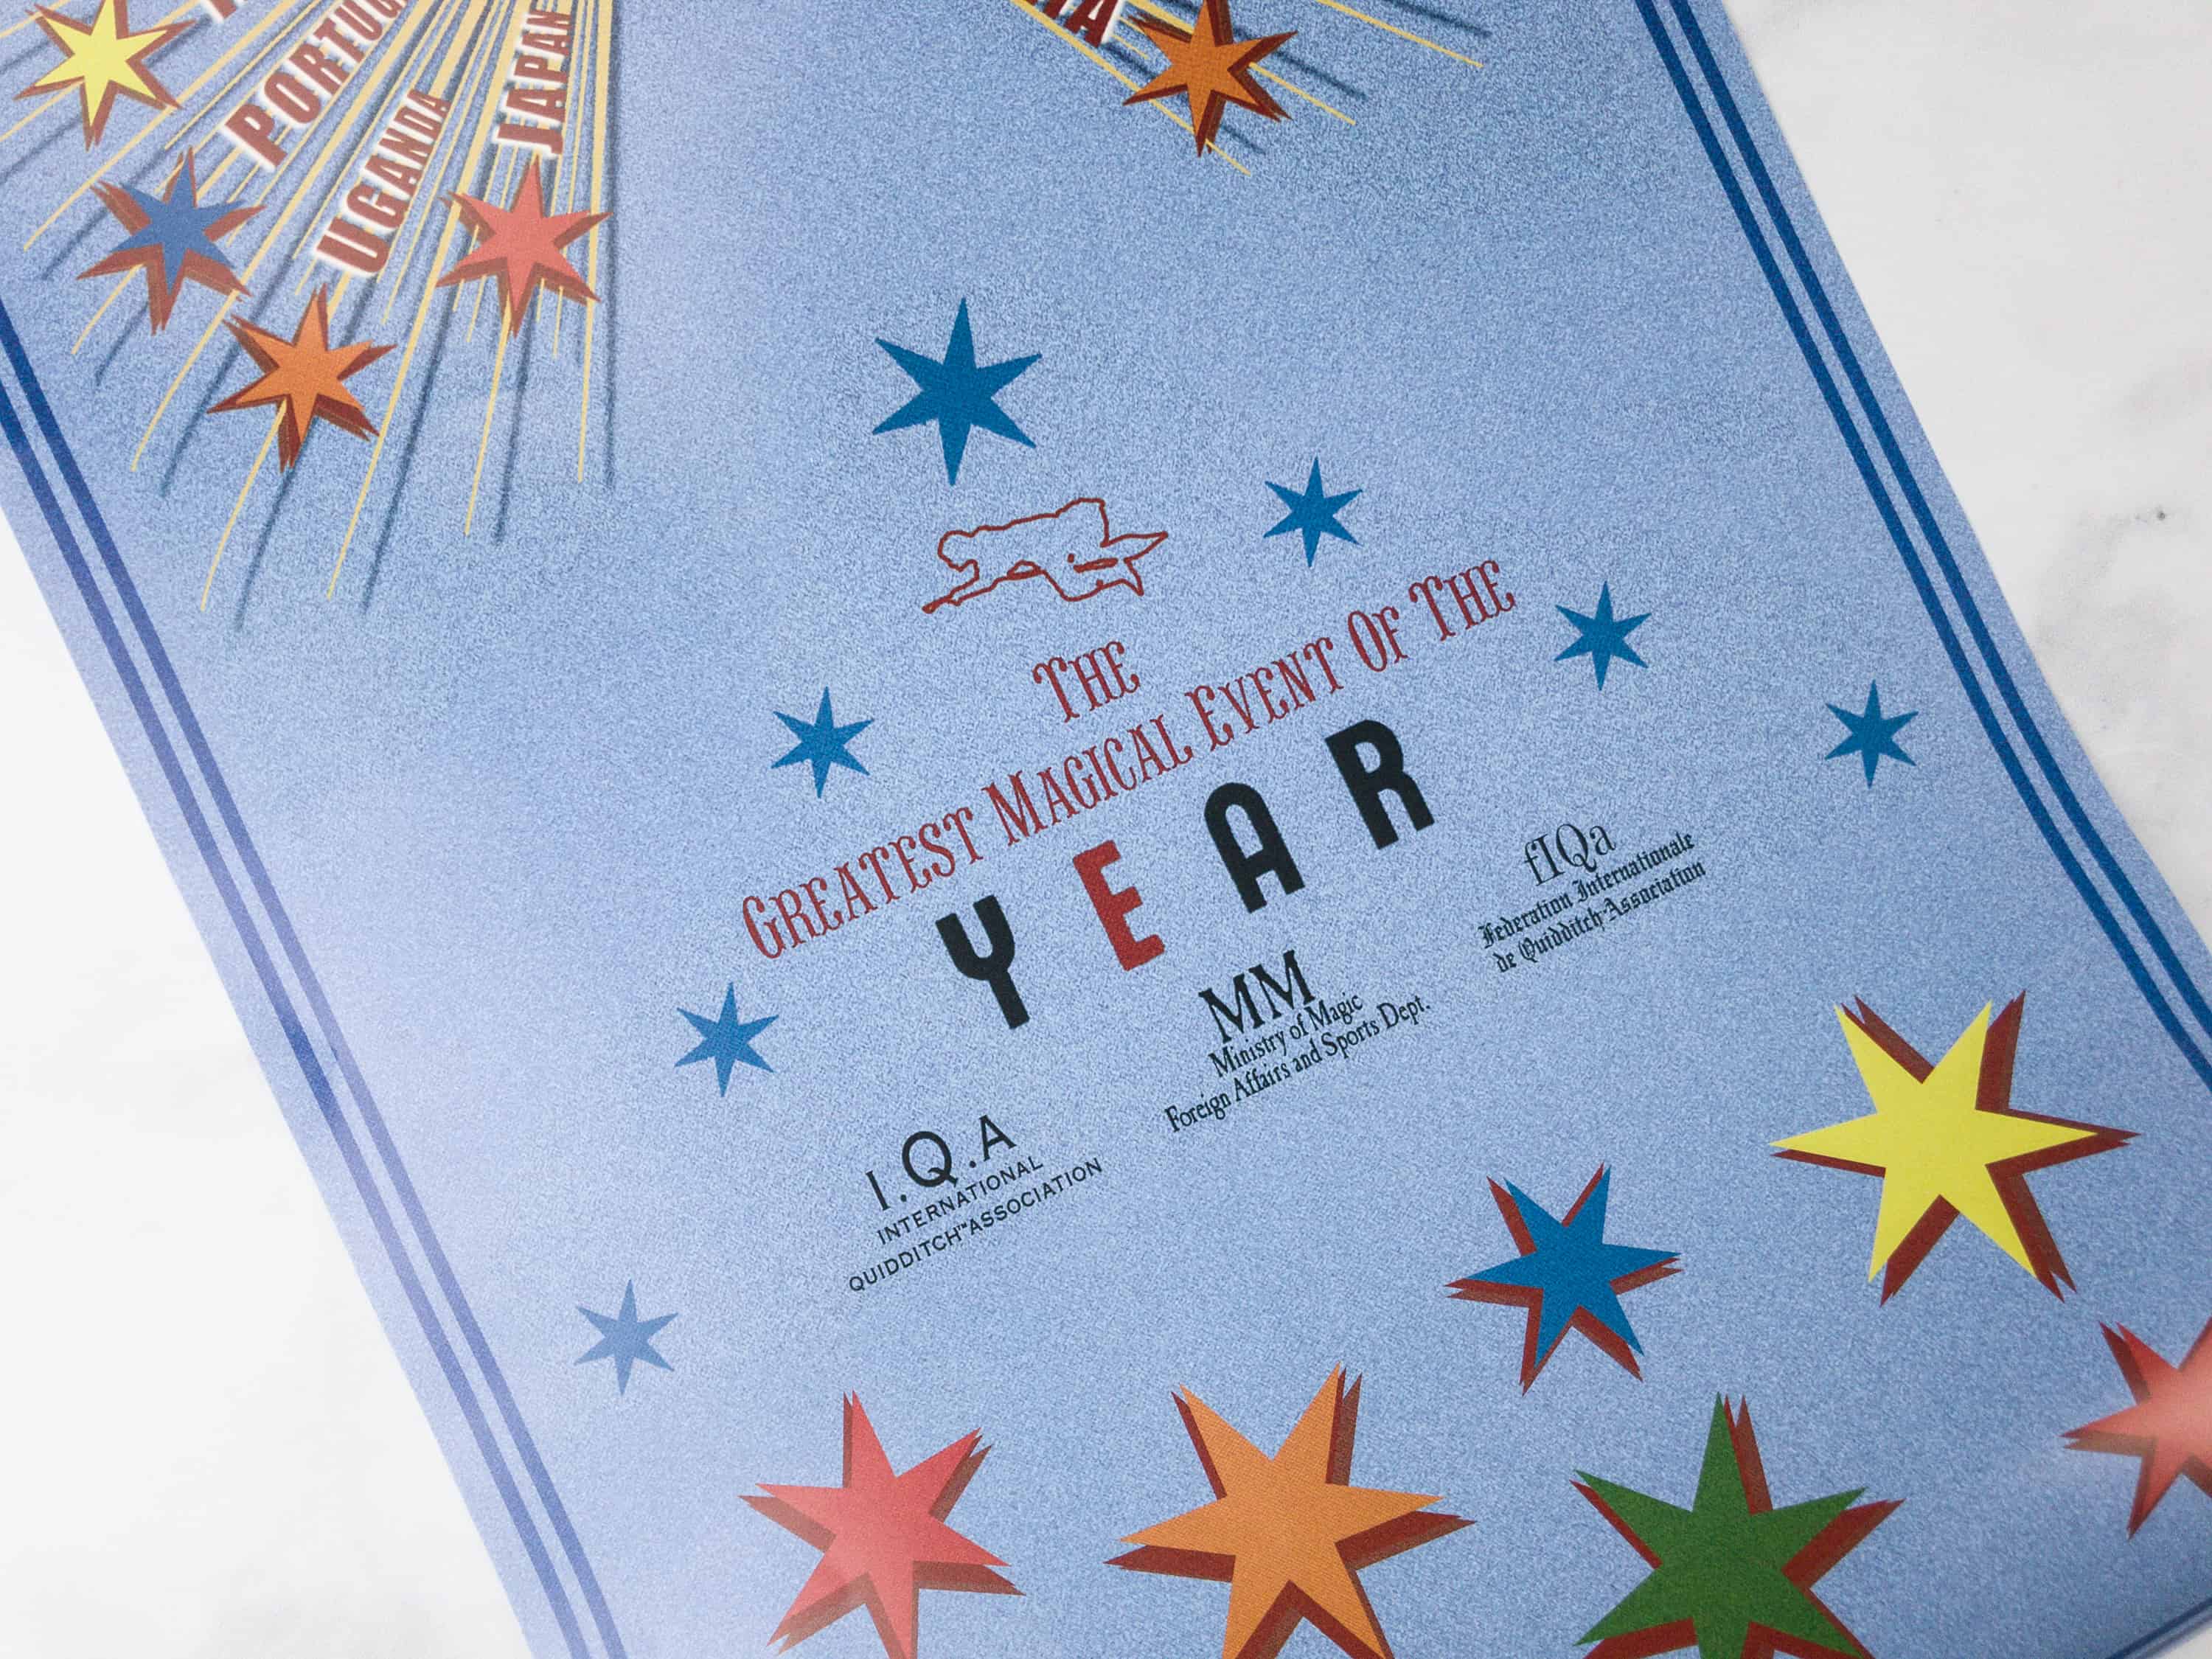 UGANDA
JAPAN
THE
GREATEST MAGICAL EVENT OF THE
YEAR
I.Q.A
INTERNATIONAL
QUIDDITCH™ASSOCIATION
MM
Ministry of Magic
Foreign Affairs and Sports Dept.
fIQa
Federation Internationale
de Quidditch Association